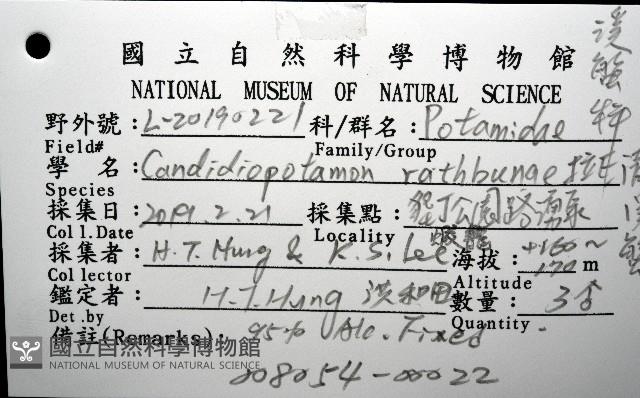 國立自然科學博物館
NATIONAL MUSEUM OF NATURAL SCIENCE
野外號: L-20190221 科/群名: Potamidae 溪蟹科
Field# Family/Group
學 名: Candidiopotamon rathbunae 拉氏清溪蟹
Species
採集日: 2019.2.21 採集點: 墾丁公園路湧泉
Coll.Date Locality
採集者: H.T. Hung & K.S. Lee 海拔: +160~170 m
Collector Altitude
鑑定者: H.T. Hung 洪和田 數量: 3
Det.by Quantity
備註(Remarks): 95% Alc. Fixed
國立自然科學博物館
NATIONAL MUSEUM OF NATURAL SCIENCE
008054-00022